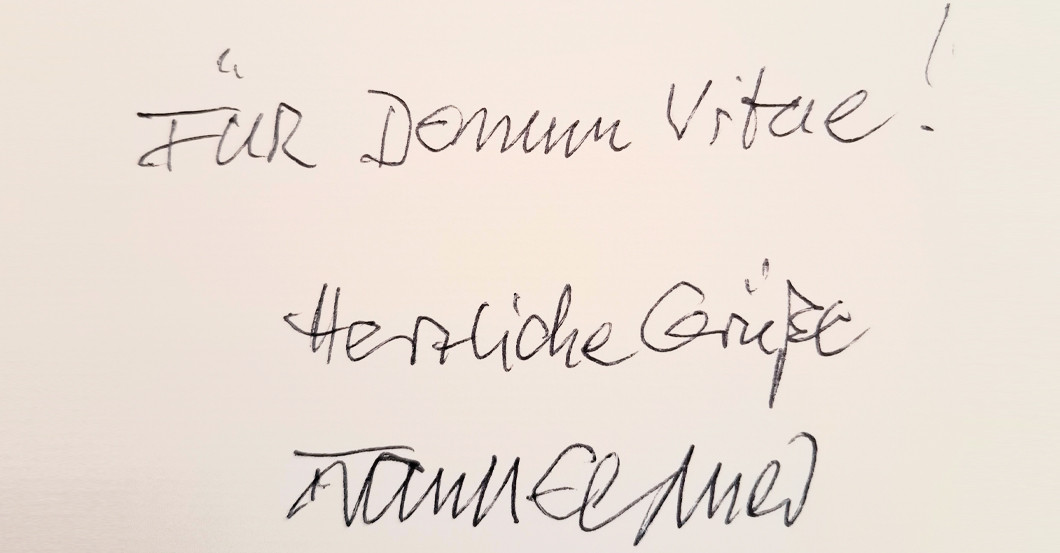 FÜR Donum Vitae!
Herzliche Grüße